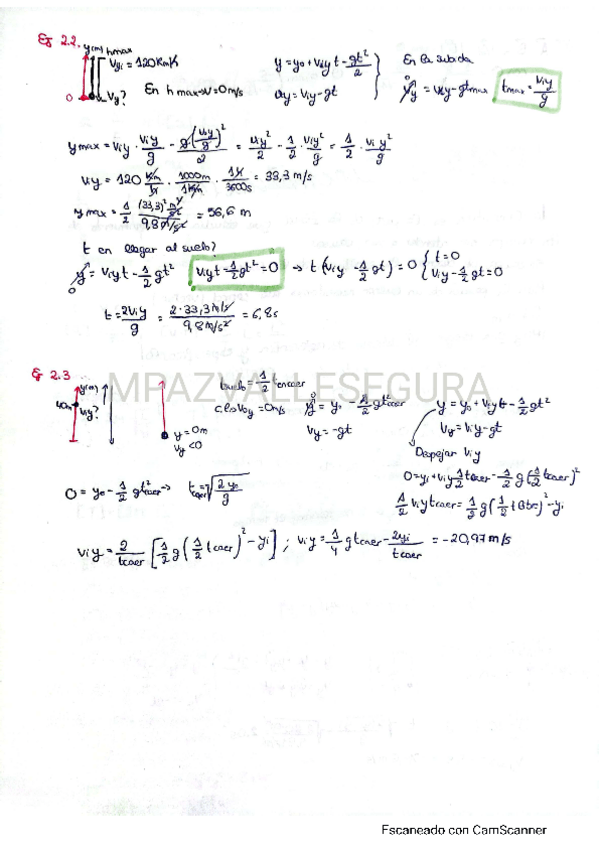 Ej 2.2.
y(m) hmax
Vyi = 120 Km/h
0
Vy?
En hmax → v = 0 m/s
y = y₀ + Viy t - gt²/2
Vy = Viy - gt
En la subida
Vy = Viy - gtmax
tmax = Viy/g
ymax = Viy · Viy/g - g(Viy/g)²/2 = Viy²/2 - 1/2 · Viy²/g = 1/2 · Viy²/g
Viy = 120 Km/h · 1000m/1Km · 1h/3600s = 33,3 m/s
ymax = 1/2 (33,3)² m²/s² / 9,8 m/s² = 56,6 m
t en llegar al suelo?
y = Viyt - 1/2 gt²
0
Viyt - 1/2 gt² = 0 → t (Viy - 1/2 gt) = 0 { t = 0
Viy - 1/2 gt = 0
t = 2Viy/g = 2·33,3 m/s / 9,8 m/s² = 6,8 s
Ej 2.3
MPAZVALLESEGURA
y(m)
40m
Viy?
y = 0m
Vy < 0
tsuelo = 1/2 tcaer
V₀y = 0m/s
y = y₀ - 1/2 gt²caer
0
Vy = -gt
y = y₀ + Viyt - 1/2 gt²
Vy = Viy - gt
Despejar Viy
0 = yi + Viy 1/2 tcaer - 1/2 g (1/2 tcaer)²
0 = y₀ - 1/2 gt²caer → tcaer = √(2y₀/g)
1/2 Viy tcaer = 1/2 g (1/2 tcaer)² - yi
Viy = 2/tcaer [1/2 g (1/2 tcaer)² - yi] ; Viy = 1/4 gtcaer - 2yi/tcaer = -20,97 m/s
Escaneado con CamScanner